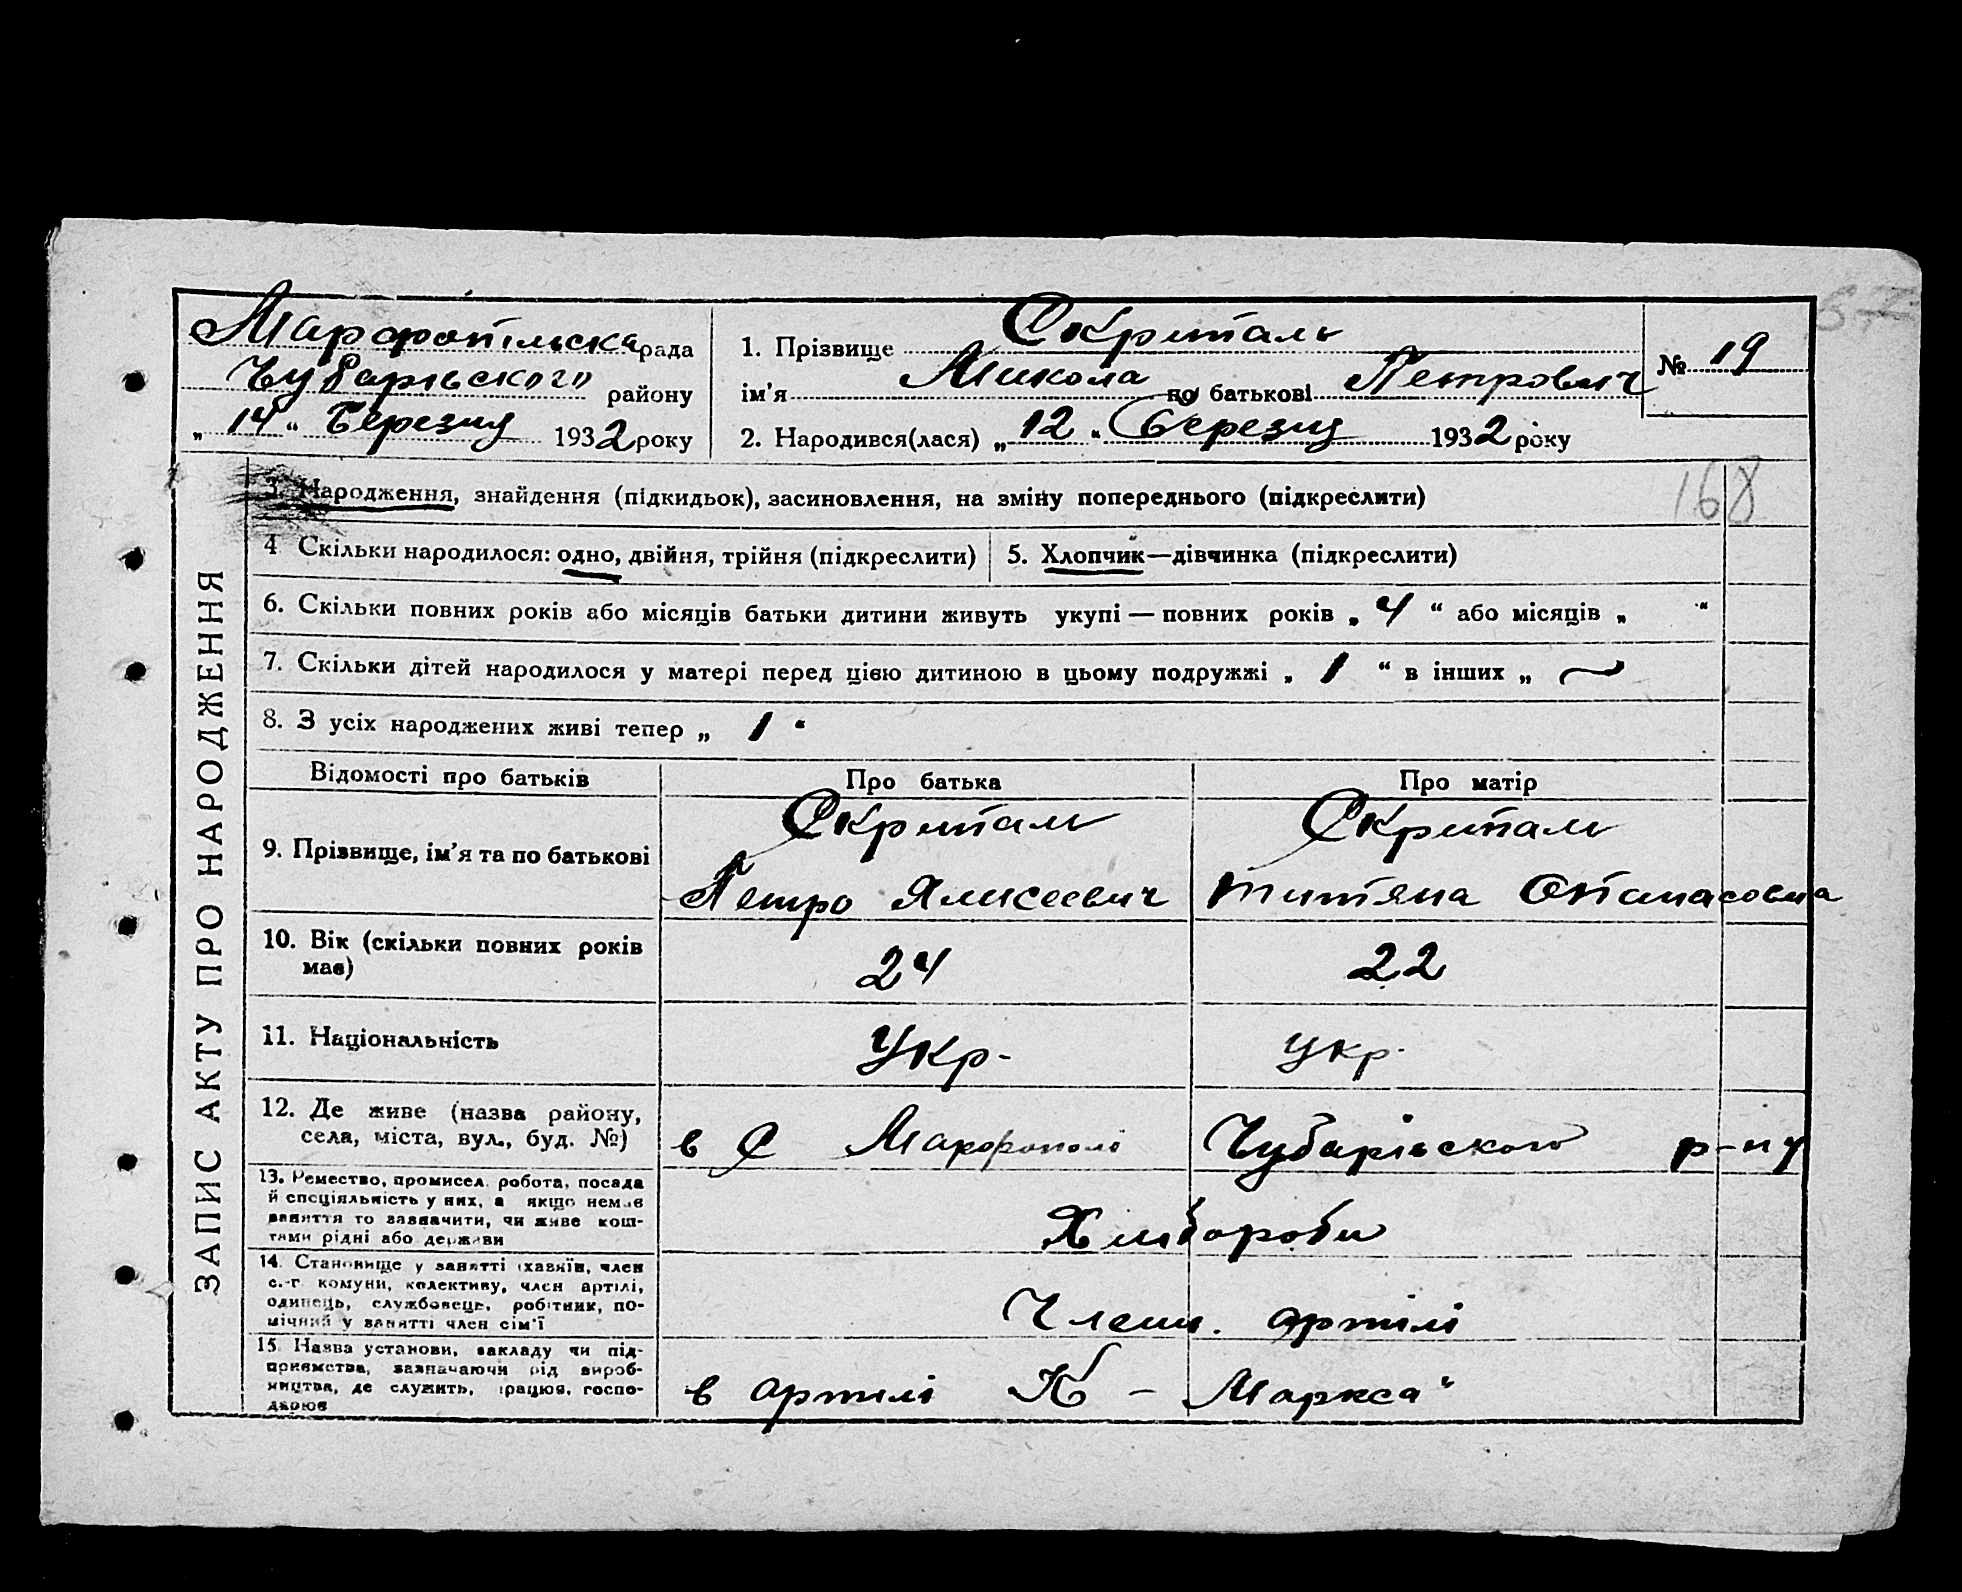 Марфопільська рада
Чубарівського району
„14“ Березня 1932 року
1. Прізвище Скрипаль
ім'я Микола по батькові Петрович
2. Народився(лася) „12“ Березня 1932 року
№ 19
168
ЗАПИС АКТУ ПРО НАРОДЖЕННЯ
3. Народження, знайдення (підкидьок), засиновлення, на зміну попереднього (підкреслити)
4 Скільки народилося: одно, двійня, трійня (підкреслити)
5. Хлопчик—дівчинка (підкреслити)
6. Скільки повних років або місяців батьки дитини живуть укупі — повних років „ 4 “ або місяців „ “
7. Скільки дітей народилося у матері перед цією дитиною в цьому подружжі „ 1 “ в інших „ —
8. З усіх народжених живі тепер „ 1 “
Відомості про батьків
Про батька
Про матір
9. Прізвище, ім'я та по батькові
Скрипаль
Петро Яликсеевич
Скрипаль
Титяна Опанасовна
10. Вік (скільки повних років
має)
24
22
11. Національність
Укр-
укр-
12. Де живе (назва району,
села, міста, вул., буд. №)
в С Марфополі Чубарівського р-ну
13. Ремество, промисел, робота, посада
й спеціяльність у них, а якщо немає
заняття то зазначити, чи живе кош-
тами рідні або держави
Хлібороби
14. Становище у занятті (хазяїн, член
с.-г. комуни, колективу, член артілі,
одинець, службовець, робітник, по-
мічний у занятті член сім'ї
Члени. артілі
15. Назва установи, закладу чи під-
приємства, зазначаючи рід вироб-
ництва, де служить, працює, госпо-
дарює
в артілі К – Маркса“